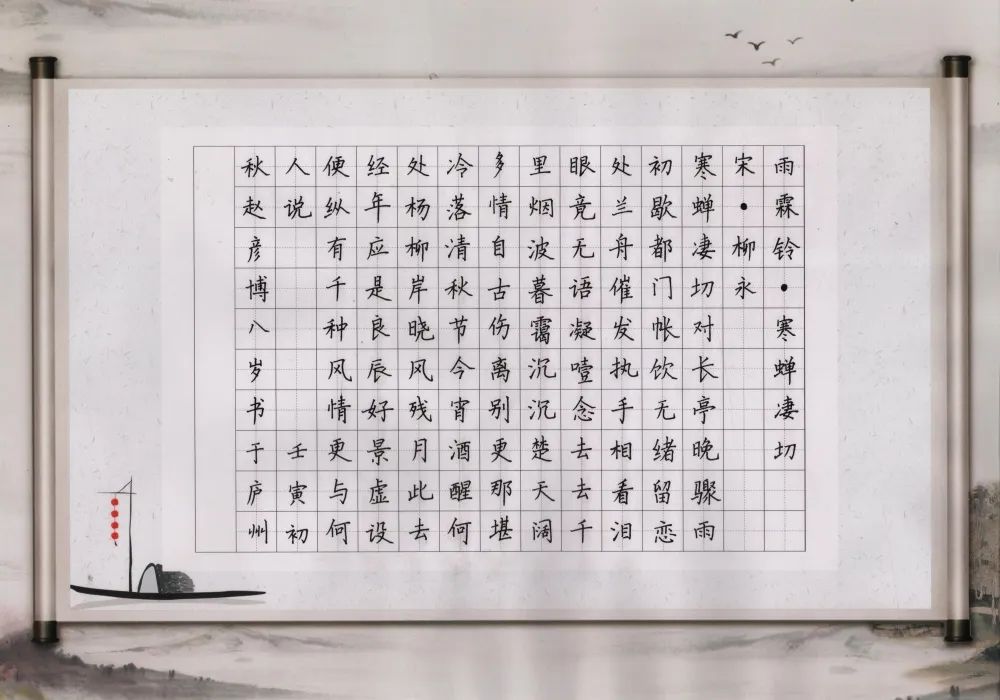 雨霖铃•寒蝉凄切
宋•柳永
寒蝉凄切对长亭晚骤雨
初歇都门帐饮无绪留恋
处兰舟催发执手相看泪
眼竟无语凝噎念去去千
里烟波暮霭沉沉楚天阔
多情自古伤离别更那堪
冷落清秋节今宵酒醒何
处杨柳岸晓风残月此去
经年应是良辰好景虚设
便纵有千种风情更与何
人说 壬寅初
秋赵彦博八岁书于庐州